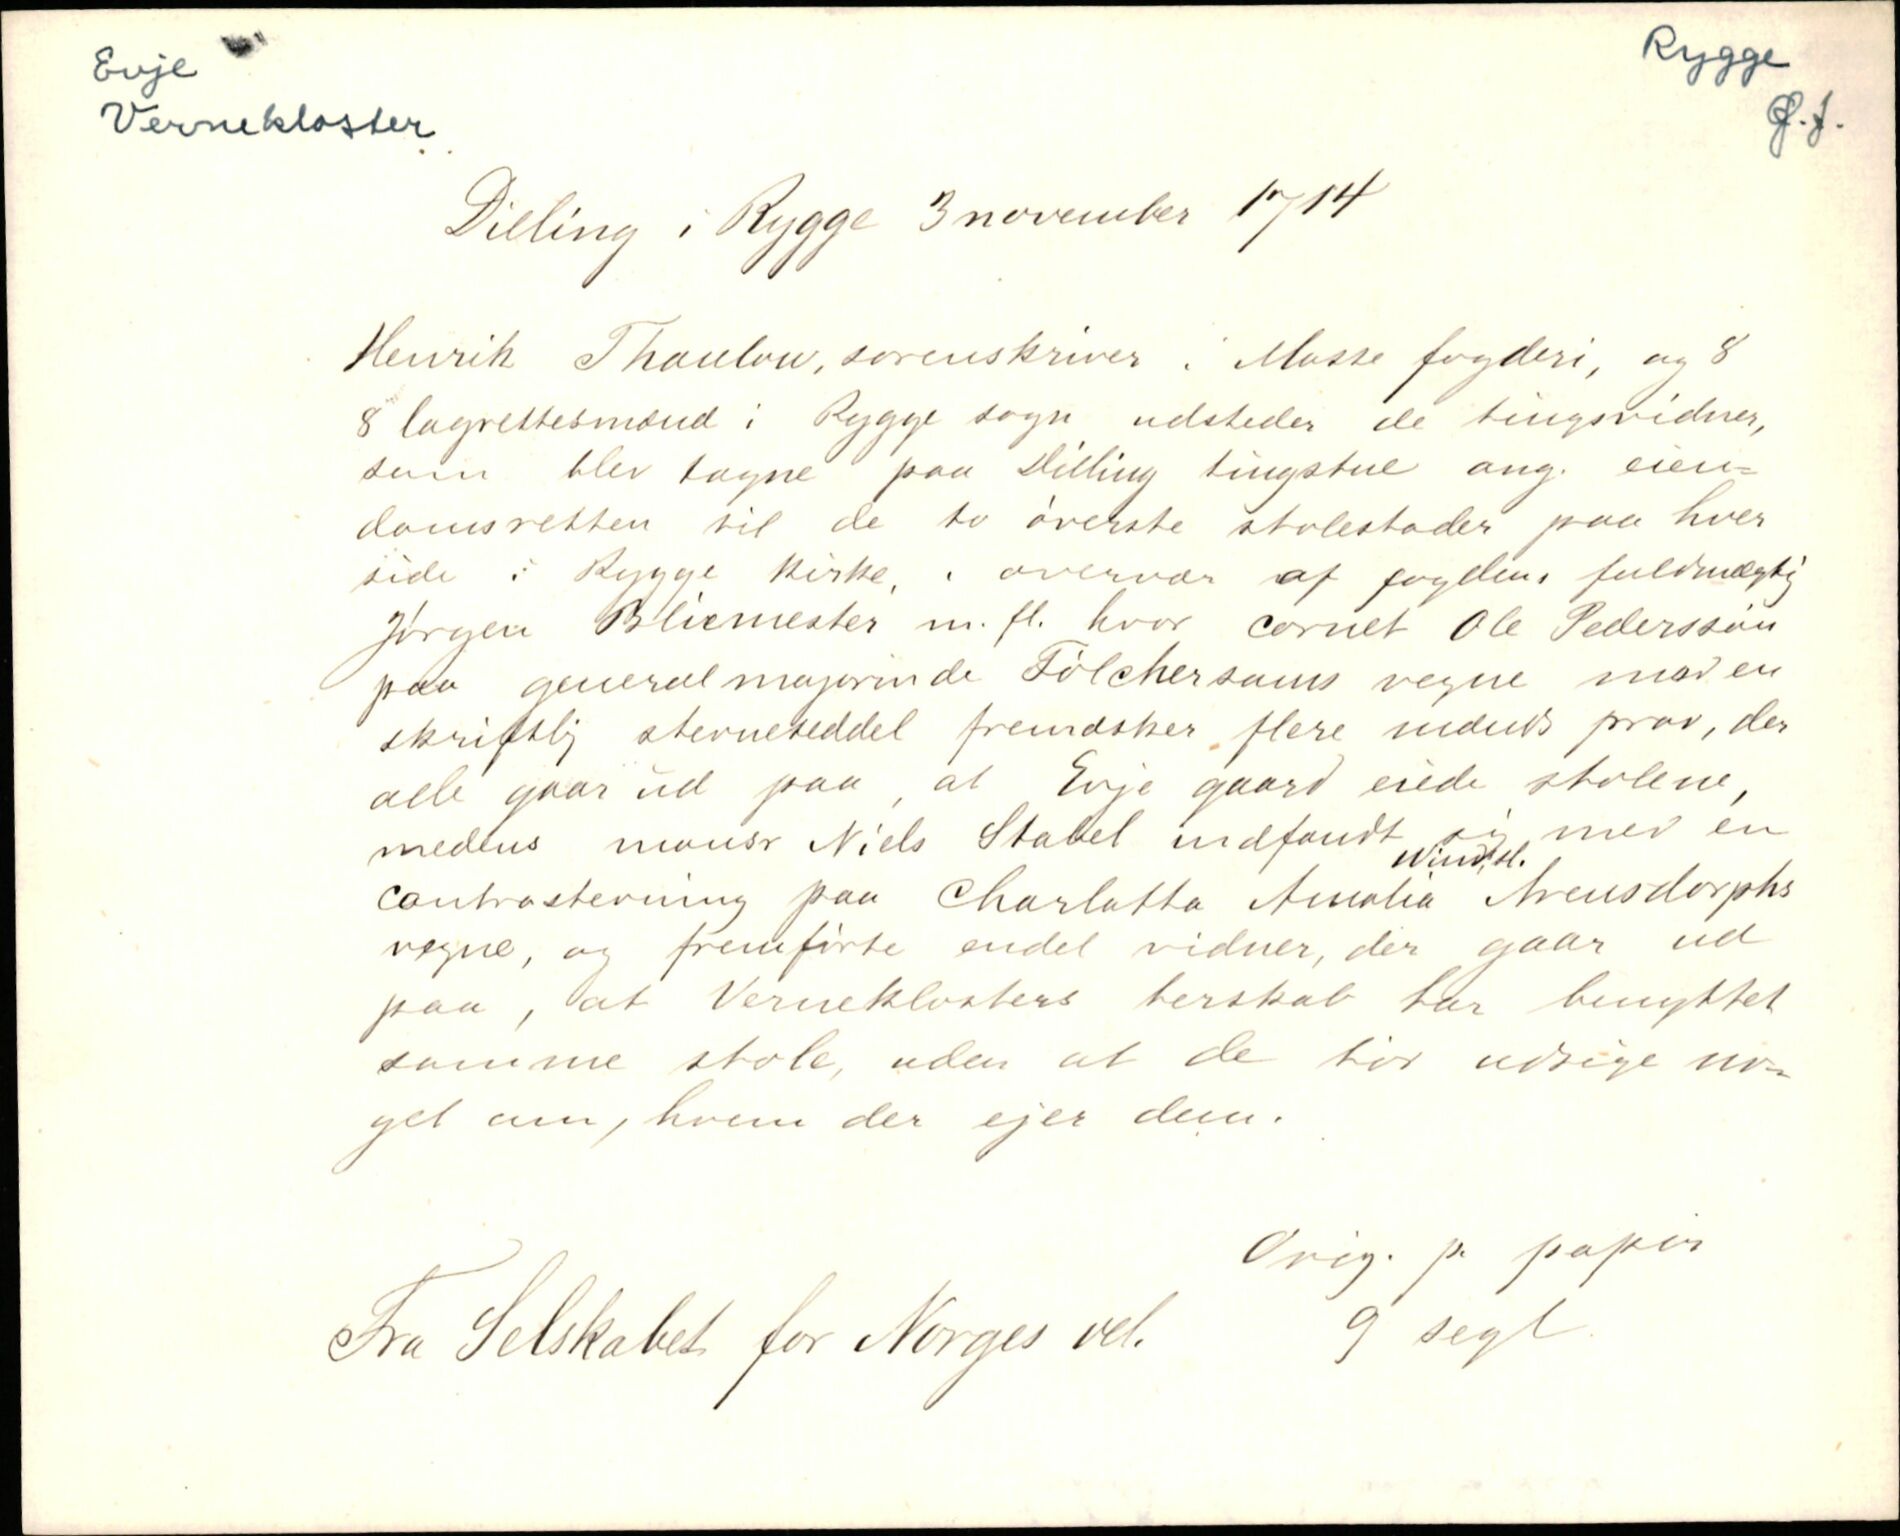 Evje
Vernekloster
Rygge
Ø.f.
Dilling i Rygge 3 november 1714
Henrik Thaulow, sorenskriver i Mosse fogderi, og 8
8 lagrettesmænd i Rygge sogn udsteder de tingsvidner,
som blev tagne paa Dilling tingstue ang. eien=
domsretten til de to øverste stolestader paa hver
side i Rygge kirke, i overvær af fogdens fuldmægtig
Jørgen Bliemester m. fl. hvor cornet Ole Pederssøn
paa generalmajorinde Fölchersams vegne med en
skriftlig stevneseddel fremæsker flere mænds prov, der
alle gaar ud paa, at Evje gaard eiede stolene,
medens monsr Niels Stabel indfandt sig med en
contrastevning paa Charlotta Amalia Arensdorphs
vegne, og fremførte endel vidner, der gaar ud
paa, at Verneklosters herskab har benyttet
samme stole, uden at de tør udsige no=
get om, hvem der ejer dem.
Orig. p. papir
9 segl
Fra Selskabet for Norges vel.